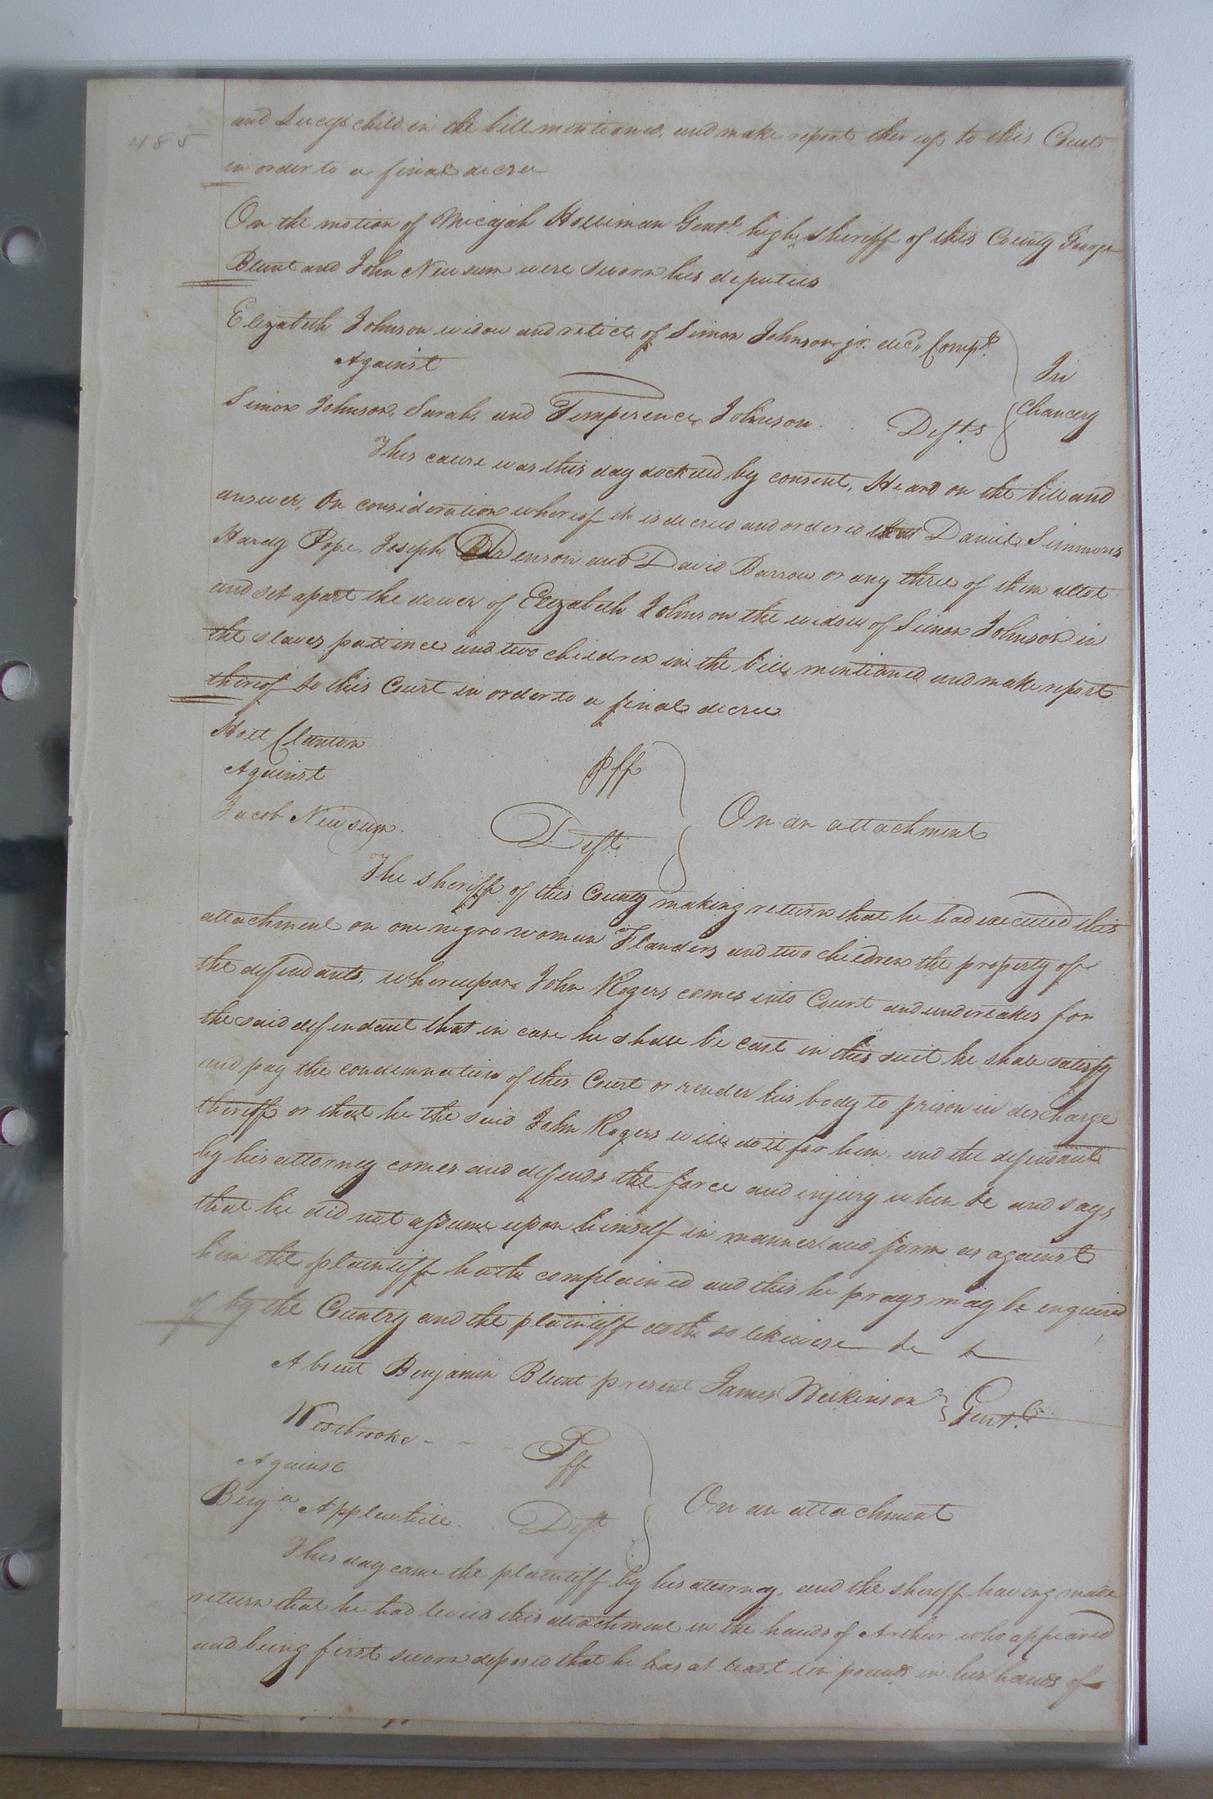 485
and Lucys child in the bill mentioned, and make report thereof to this Court
in order to a final decree
On the motion of Micajah Holliman Gent. high sheriff of this County George
Blunt and John Newsum were sworn his deputies
Elizabeth Johnson widow and relict of Simon Johnson jr. decd. Compt.
Against
In Chancery
Simon Johnson, Sarah, and Temperence Johnson. Defts
This cause was this day docketed by consent, Heard on the bill and
answer, On consideration whereof it is decreed and ordered that Daniel Simmons
Hardy Pope, Joseph Denson and David Barrow or any three of them allot
and set apart the dower of Elizabeth Johnson the widow of Simon Johnson in
the slaves patience and two children in the bill mentioned and make report
thereof to this Court in order to a final decree
Holt Clanton Pff
Against
On an attachment
Jacob Newsum. Deft.
The sheriff of this County making return that he had executed this
attachment on one negro woman Flanders and two children the property of
the defendants, whereupon John Rogers comes into Court and undertakes for
the said defendant that in case he shall be cast in this suit he shall satisfy
and pay the condemnation of this Court or render his body to prison in discharge
thereof or that he the said John Rogers will do it for him, and the defendant
by his attorney comes and defends the force and injury when &c and says
that he did not assume upon himself in manner and form as against
him the plaintiff hath complained and this he prays may be enquired
of by the Country and the plaintiff doth so likewise &c &c
Absent Benjamin Blunt present James Wilkinson Gent.
Westbrooke - - - Pff
Against
On an attachment
Benja. Applewhite. Deft.
This day came the plaintiff by his attorney, and the sheriff having made
return that he had levied this attachment in the hands of Arthur who appeared
and being first sworn deposed that he has at least ten pounds in his hands of